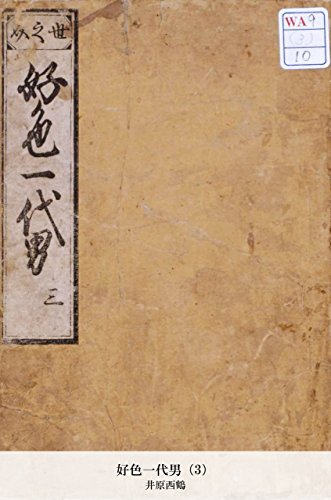 世之介
好色一代男
三
WA9
(3)
10
好色一代男 (3)
井原西鶴